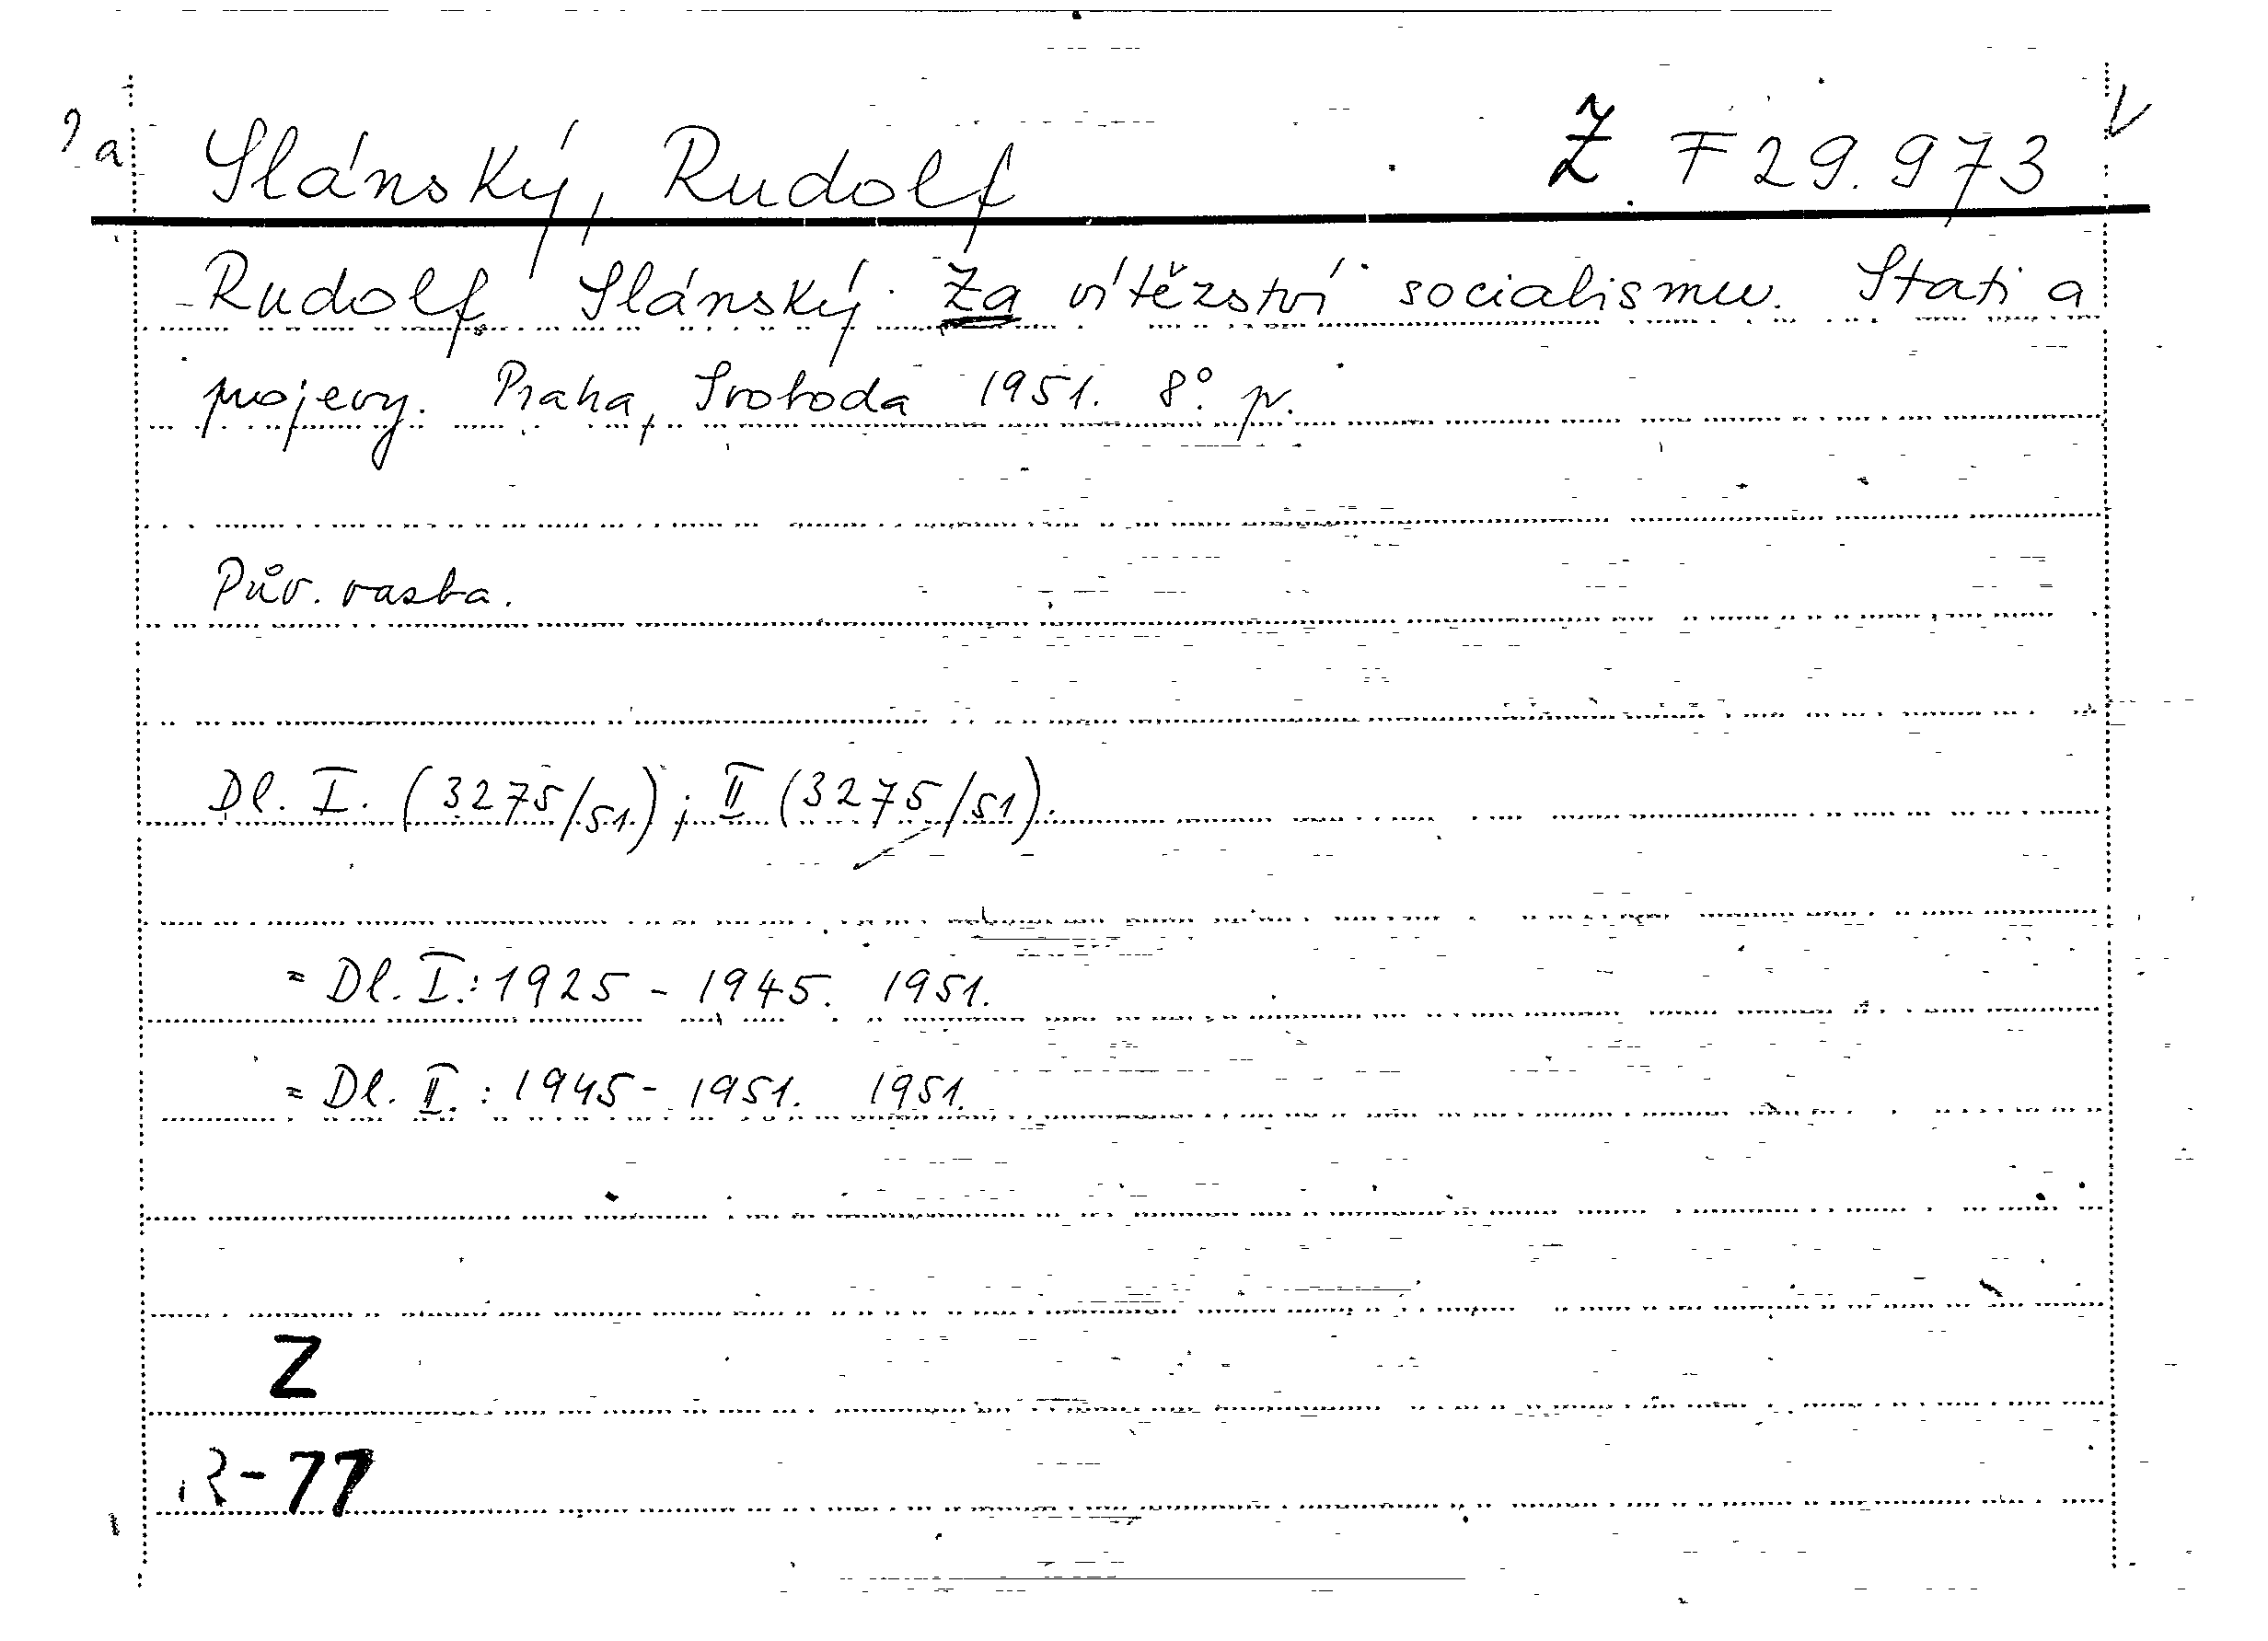 ?a Slánský, Rudolf Ž. F 29.973 V
Rudolf Slánský. Za vítězství socialismu. Stati a
projevy. Praha, Svoboda 1951. 8°. p.
Pův. vazba.
Dl. I. (3275/51); II (3275/51).
= Dl. I.: 1925 - 1945. 1951.
= Dl. II.: 1945 - 1951. 1951.
Z
R-77